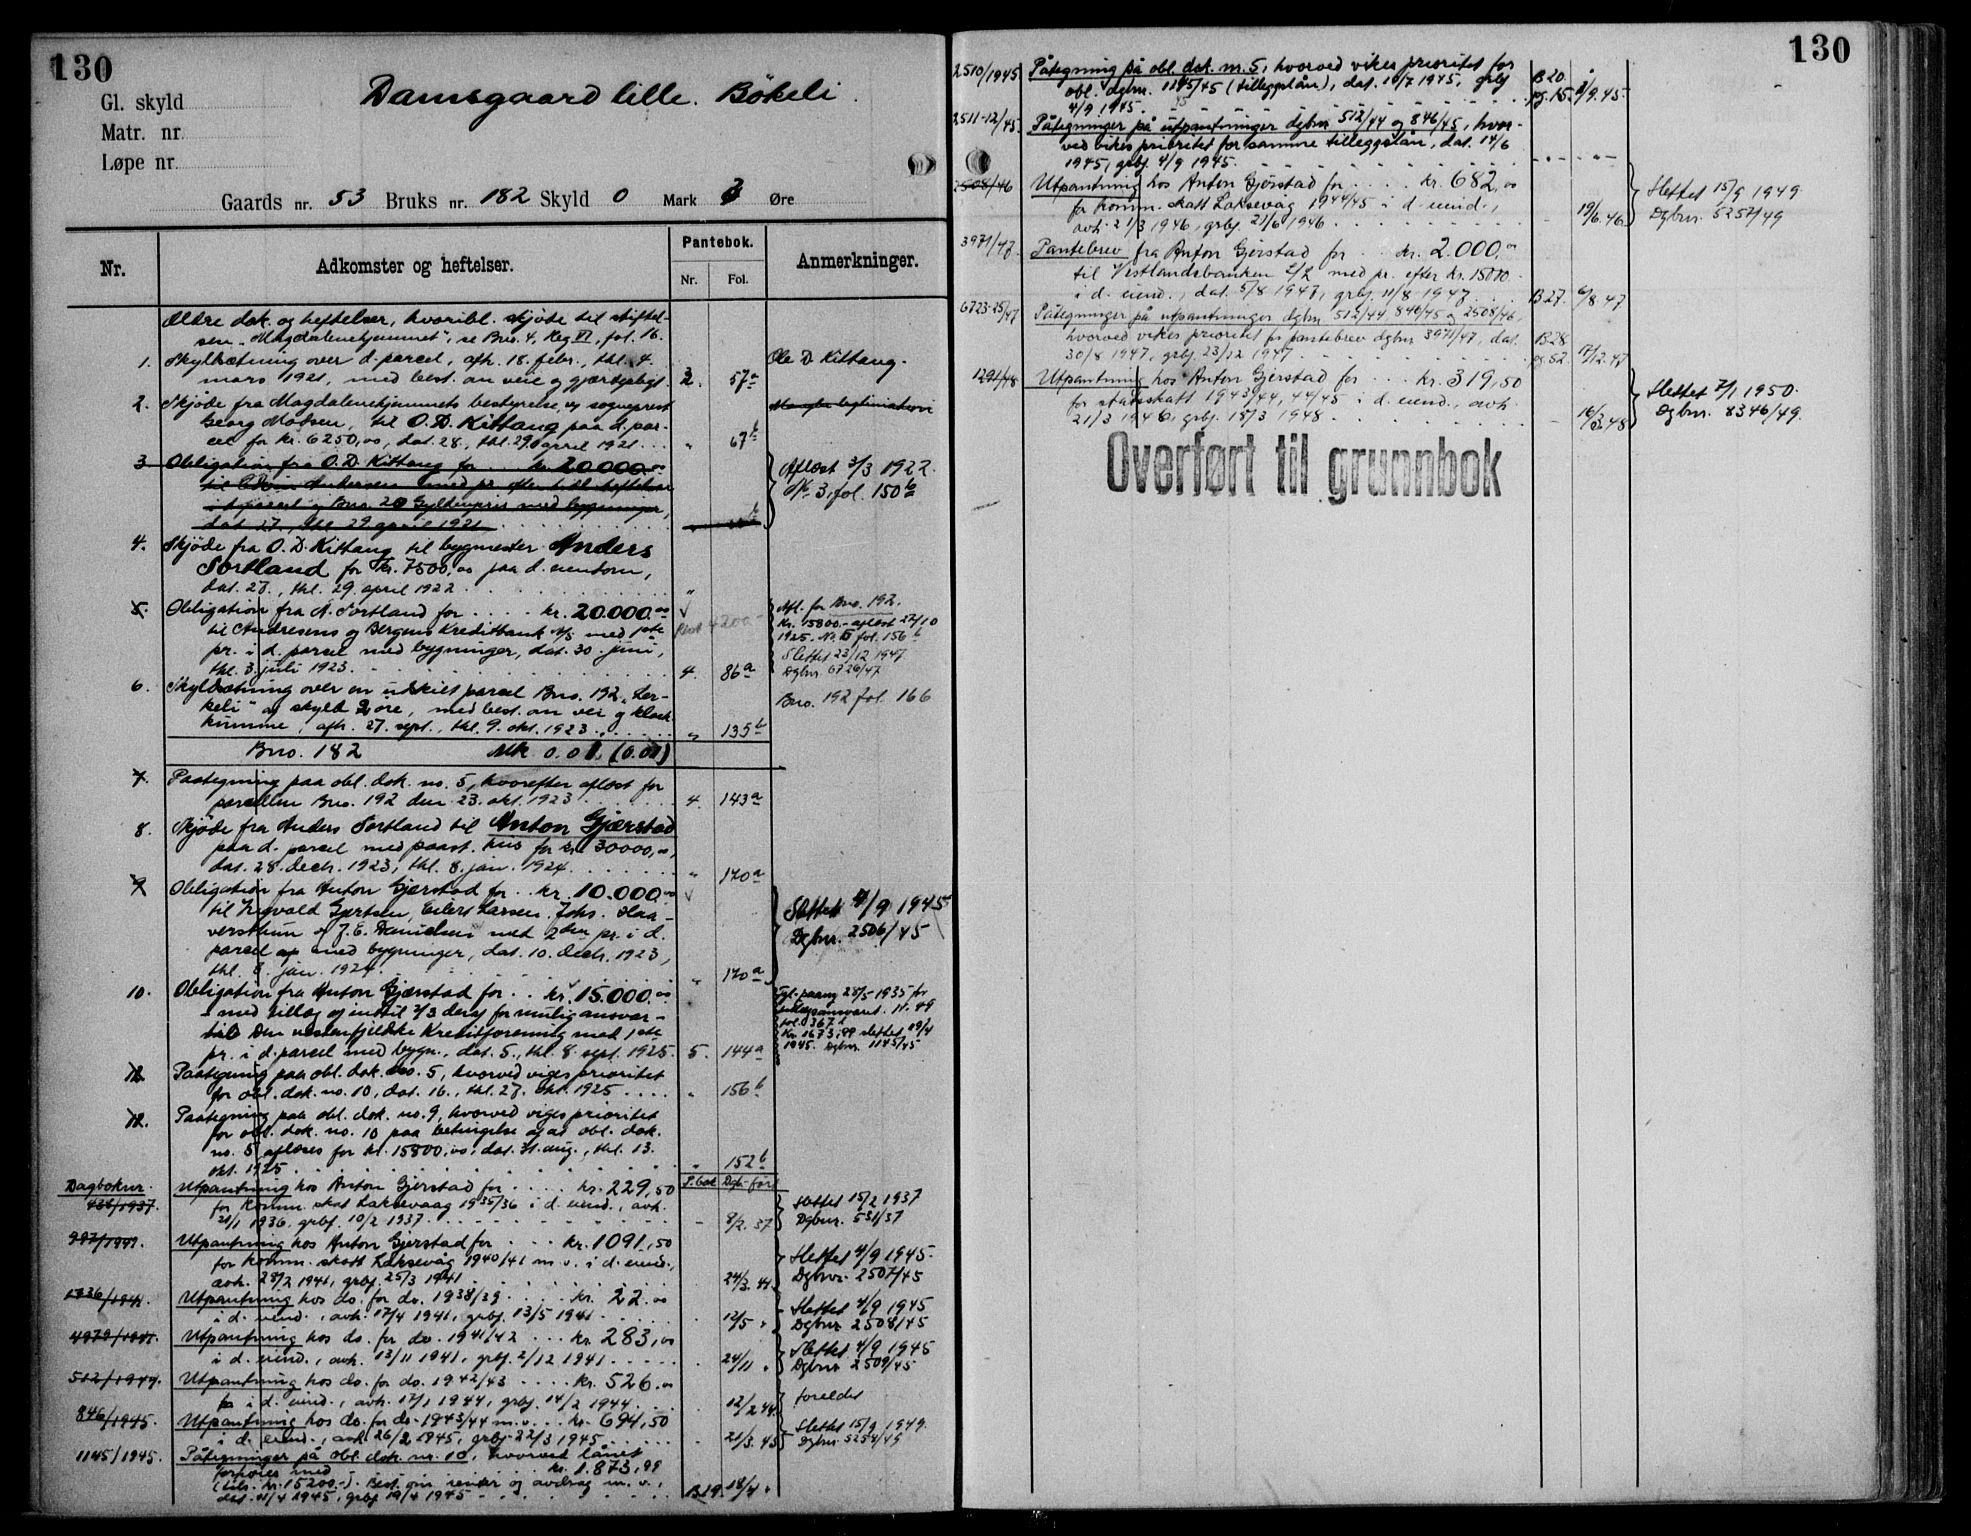 130
Gl. skyld
Damsgaard lille. Bökeli.
Matr. nr.
Løpe nr.
Gaards nr. 53 Bruks nr. 182 Skyld 0 Mark 3 Øre
Nr.
Adkomster og heftelser.
Pantebok.
Nr. Fol.
Anmerkninger.
Ældre dok. og heftelser, hvoribl. skjöte til stiftel-
sen "Magdalenehjemmet", se Bno. 4, Reg VI, fol. 16.
1. Skyldsætning over d. parcel, afh. 18. febr., thl. 4. Ole D Kittang.
mars 1921, med best. om veie og gjærdepligt. 2. 57a
2. Skjöde fra Magdalenehjemmets bestyrelse ved sogneprest Mangler legitimation
Georg Madsen, til O.D. Kittang paa d. par-
cel for kr. 6250,00, dat. 28., thl. 29 april 1921 ... " 67b
3 Obligation fra O.D. Kittang for ... kr. 20000.00 Aflöst 3/3 1922.
til Edvin Andersen med pr. efter tidl. heftelser No 3, fol. 150b
i d. parcel og Bno. 20 Gyldenpris med bygninger,
dat. 27., thl. 29 april 1921
4. Skjöde fra O.D. Kittang til bygmester Anders
Sortland for kr. 7500,00 paa d. eiendom,
dat. 27., thl. 29. april 1922 "
5. Obligation fra A. Sortland for .... kr. 20.000.00 Afl. for Bno. 192.
til Andresens og Bergens Kreditbank A/S med 1ste Rest 4200.- Kr. 15800.- aflöst 27/10
pr. i d. parcel med bygninger, dat. 30. juni, 1925. No. 5 fol. 156b
thl. 3. juli 1923. 4. 86a Slettet 23/12 1947
Dgbnr. 6726/47
6. Skyldsætning over en udskilt parcel Bno. 192 "Ler-
keli" af skyld 2 öre, med best. om vei og kloak- Bno. 192 fol. 166
kumme, afh. 27. sept., thl. 9. okt. 1923 " 135b
Bno. 182 Mk 0.01. (0.01)
7. Paategning paa obl. dok. no. 5, hvorefter aflöst for
parcellen Bno. 192 den 23. okt. 1923 4. 143a
8. Skjöde fra Anders Sortland til Anton Gjærstad
paa d. parcel med paast. hus for kr. 30000,00,
dat. 28. decbr. 1923, thl. 8. jan. 1924. " 170a
9 Obligation fra Anton Gjærstad for .. kr. 10.000.00
til Ingvald Gjertsen, Eilert Larsen, Johs. Haa- Slettet 4/9 1945
versthun og J.E. Danielsen med 2den pr. i d. Dgbnr. 2506/45
parcel med bygninger, dat. 10. decbr. 1923,
thl. 8. jan. 1924. " 170a
10. Obligation fra Anton Gjærstad for .. kr. 15.000.00 Tgl. paateg 28/5 1935 for
med tillæg og indtil 2/3 deraf for mulig ansvar tillægsansvaret. N. 49
til Den vestenfjeldske Kreditforening med 1ste fol. 367
pr. i d. parcel med bygn., dat. 5., thl. 8. sept. 1925. 5. 144a Kr. 1673,99 slettet 19/4
1945. Dgbnr. 1145/45
11. Paategning paa obl. dok. no. 5, hvorved viges prioritet
for obl. dok. no. 10, dat. 16., thl. 27. okt. 1925 .... " 156b
12. Paategning paa obl. dok. no. 9, hvorved viges prioritet
for obl. dok. no. 10 paa betingelse af at obl. dok.
no. 5 aflöses for kr. 15800,00, dat. 31. aug., thl. 13.
okt. 1925 " 152b
Dagboknr. Utpantning hos Anton Gjerstad for .... kr. 229,50 P.bok Dgb-före
438/1937. for komm. skat Laksevaag 1935/36 i d. eiend., avh. Slettet 15/2 1937
20/1 1936, grbf. 10/2 1937 - 8/2. 37 Dgbnr. 531/37
997/1941. Utpantning hos Anton Gjerstad for .... kr. 1091,50
for komm. skatt Laksevåg 1940/41 m.v. i d. eiend., Slettet 4/9 1945
avh. 28/2 1941, grbf. 25/3 1941 24/3. 41 Dgbnr. 2507/45
1736/1941. Utpantning hos do. for do. 1938/39 .... kr. 22.00 Slettet 4/9 1945
i d. eiend., avh. 17/4 1941, grbf. 13/5 1941 12/5 " Dgbnr 2508/45
4979/1941. Utpantning hos do. for do. 1941/42 ... kr. 283,00 Slettet 4/9 1945
i d. eiend., avh. 13/11 1941, grbf. 2/12 1941 24/11 " Dgbnr 2509/45
512/1944. Utpantning hos do. for do. 1942/43 .... kr. 526.00 foreldet
i d. eiend., avh. 17/1 1944, grbf. 14/2 1944 12/2 44
846/1945. Utpantning hos do. for do. 1943/44 m.v. .. kr. 694,50 Slettet 15/9 1949
i d. eiend., avh. 26/2 1945, grbf. 22/3 1945 21/3. 45 Dgbnr. 5258/49
1145/1945. Påtegninger på obl. dok. nr. 10, hvorved lånet
forhöies med kr. 1.873,99
(tils. kr. 15200.-). Best. om renter og avdrag m.v.,
dat. 11/4 1945, grbf 19/4 1945 B19. 18/4 "
130
2510/1945 Påtegning på obl. dok. nr. 5, hvorved vikes prioritet for
obl. dgbnr. 1145/45 (tilleggslån), dat. 10/7 1945, grbf B20
4/9 1945. pg. 15. 1/9. 45.
2511-12/45. Påtegninger på utpantninger dgbnr 512/44 og 846/45, hvor-
ved vikes prioritet for samme tilleggslån, dat. 14/6
1945, grbf. 4/9 1945.
2508/46 Utpantning hos Anton Gjerstad for .... kr. 682,00 Slettet 15/9 1949
for komm. skatt Laksevåg 1944/45 i d. eiend., Dgbnr. 5257/49
avh. 21/3 1946, grbf. 21/6 1946 - 19/6. 46
3971/47. Pantebrev fra Anton Gjerstad for .. kr. 2.000,00
til Vestlandsbanken L/L med pr. efter kr. 15000
i d. eiend., dat. 5/8 1947, grbf. 11/8 1947 B27. 6/8 47
6723-25/47 Påtegninger på utpantninger dgbnr 512/44, 846/45 og 2508/46,
hvorved vikes prioritet for pantebrev dgbnr 3971/47, dat. B28
30/8 1947, grbf. 23/12 1947 pg. 52. 17/12. 47
1291/48 Utpantning hos Anton Gjerstad for .... kr. 319,50 Slettet 7/1 1950.
for statsskatt 1943/44, 44/45 i d. eiend., avh. Dgbnr. 8346/49.
21/3 1946, grbf. 18/3 1948 - 16/3. 48
Overført til grunnbok